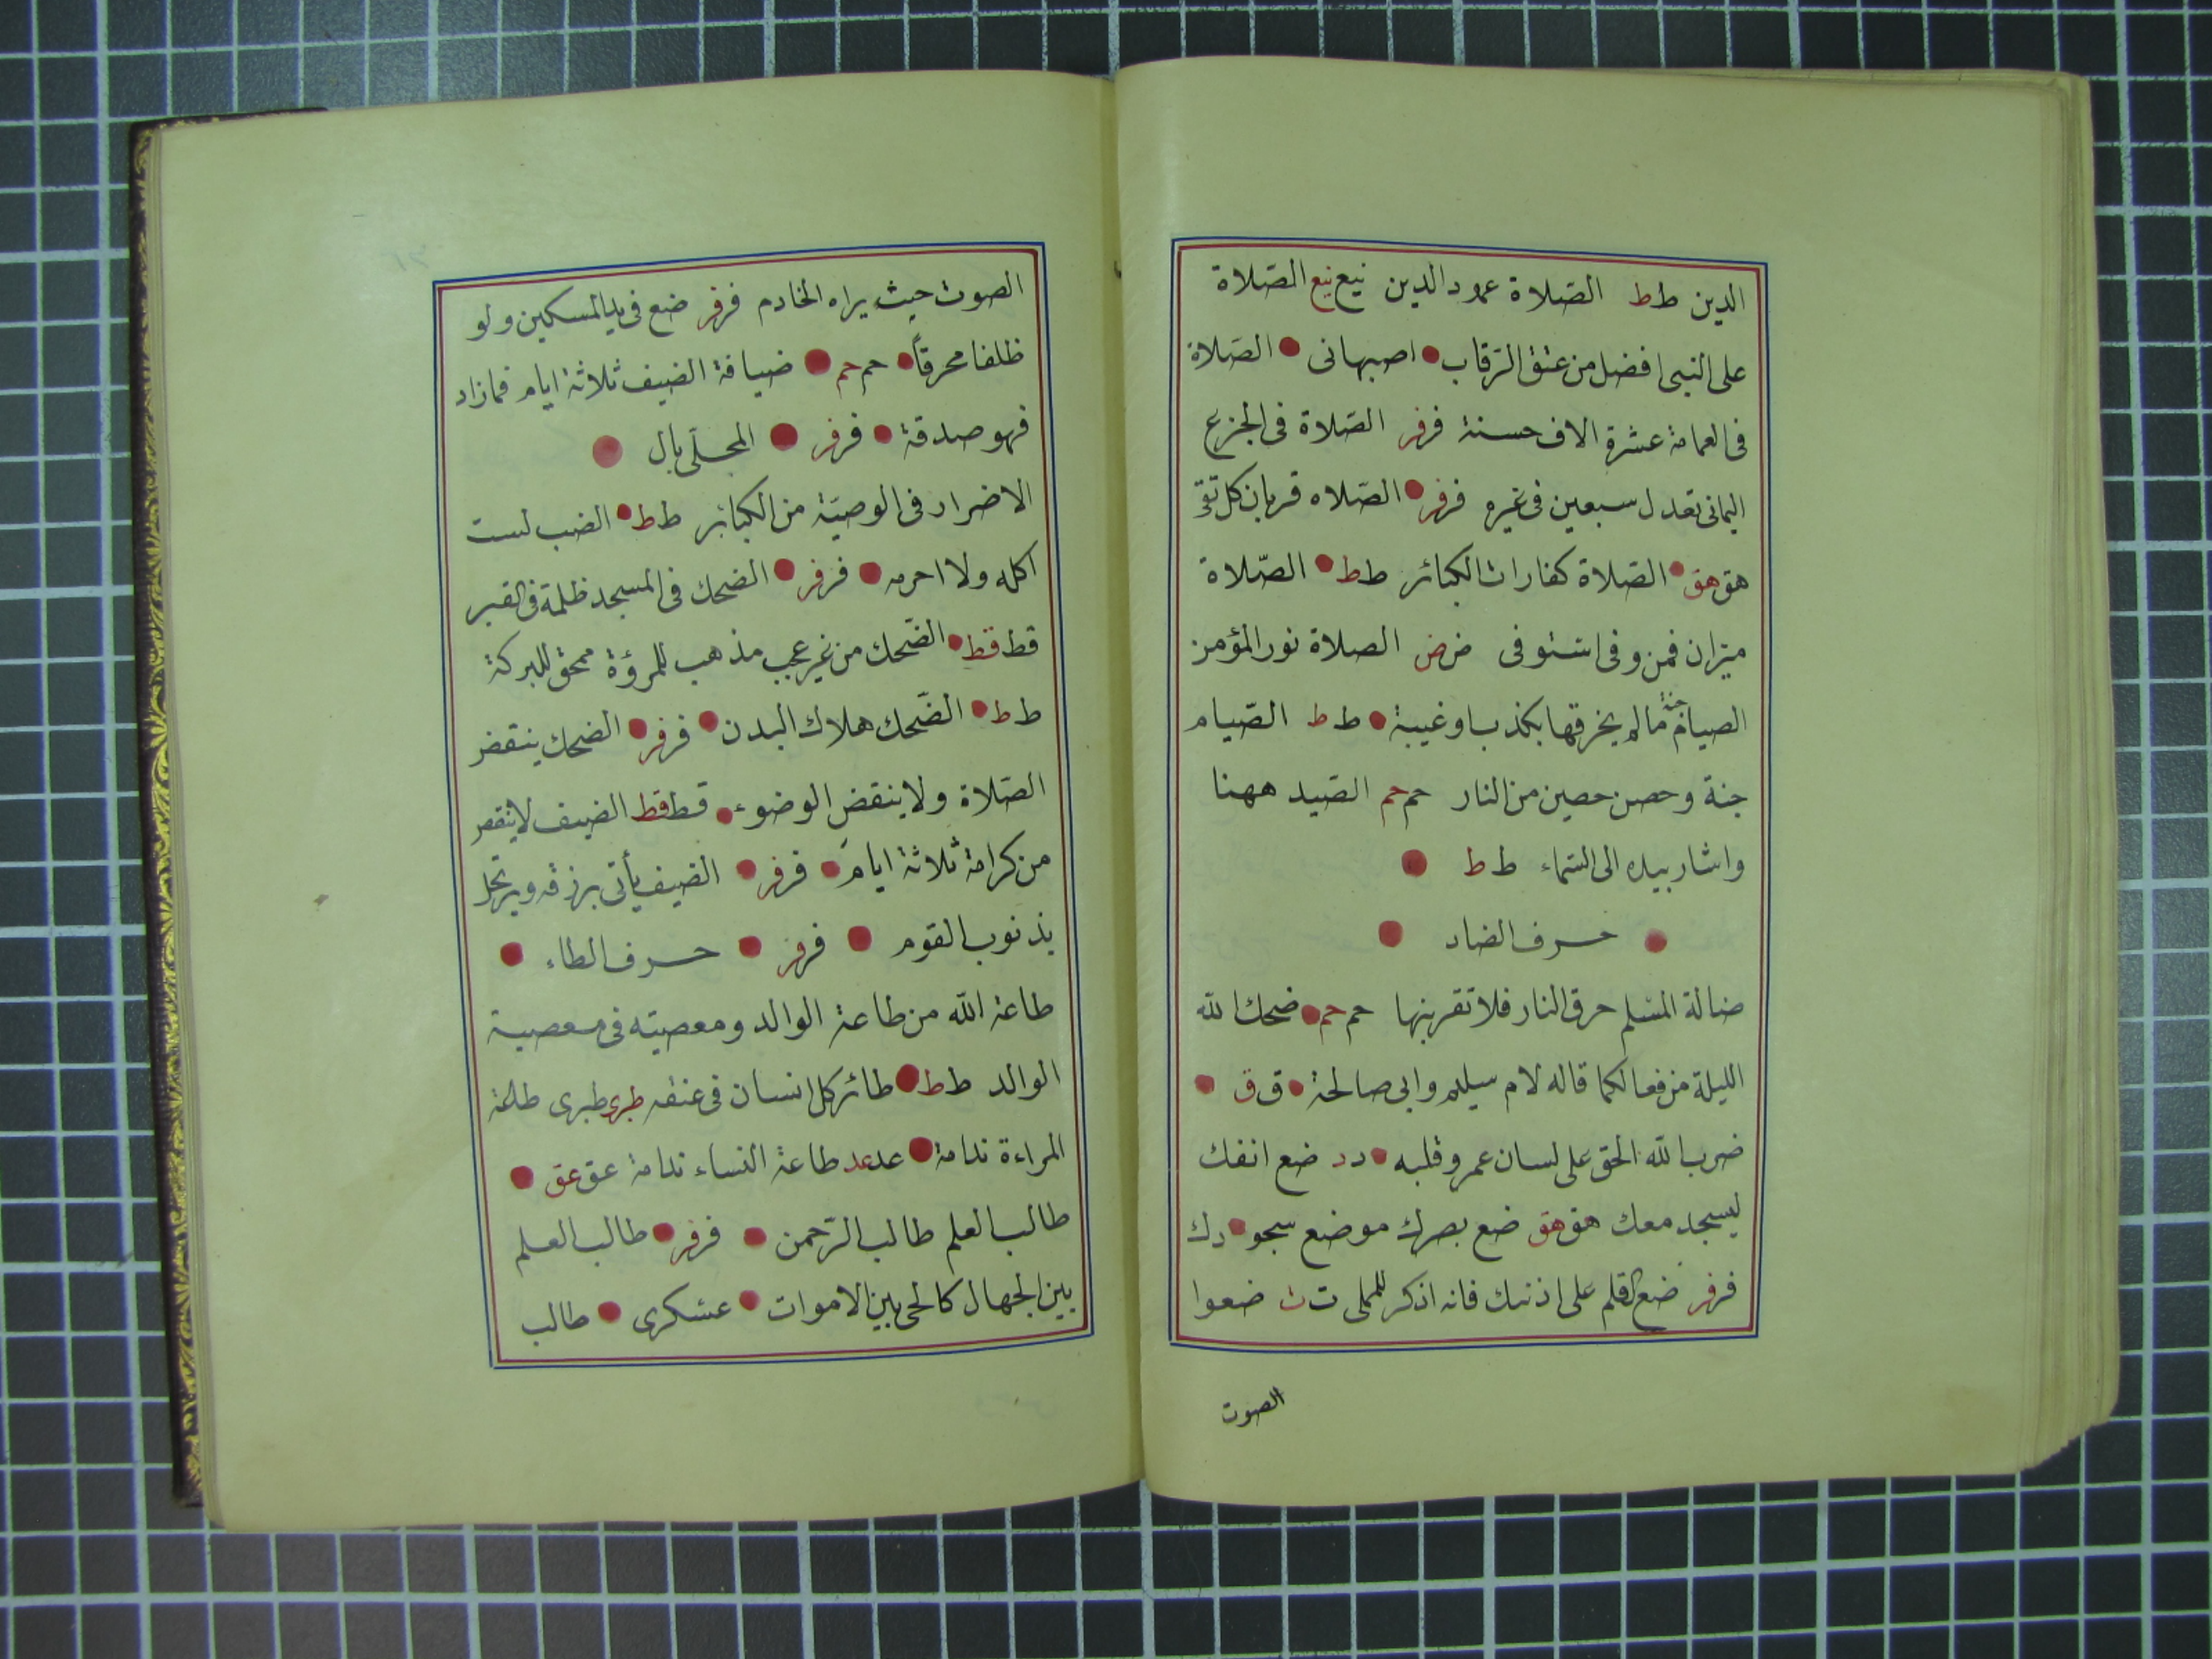 الدين ط ط الصّلاة عمود الدين نيع نيع الصّلاة
على النبى افضل من عتق الرّقاب اصبهانى الصّلاة
فى العمامة عشرة الاف حسنة فر فر الصّلاة فى الجزع
اليمانى تعدل سبعين فى غيره فر فر الصّلاه قربان كل تقى
هق هق الصّلاة كفارات الكبائر ط ط الصّلاة
ميزان فمن وفى استوفى ض ض الصلاة نور المؤمن
الصيام جنة ما لم يخرقها بكذب او غيبة ط ط الصّيام
جنة وحصن حصين من النار حم حم الصّيد ههنا
واشار بيده الى السّماء ط ط
حرف الضاد
ضالة المسلم حرق النار فلا تقربنها حم حم ضحك الله
الليلة من فعالكما قاله لام سيلم وابى صالحة ق ق
ضرب الله الحق على لسان عمر وقلبه د د ضع انفك
ليسجد معك هق هق ضع بصرك موضع سجو دك
فر فر ضع القلم على اذنك فانه اذكر للملى ت ت ضعوا
الصوت
الصوت حيث يراه الخادم فر فر ضع فى يد المسكين ولو
ظلفا محرقاً حم حم ضيافة الضيف ثلاثة ايام فما زاد
فهو صدقة فر فر المحلّى بال
الاضرار فى الوصيّة من الكبائر ط ط الضب لست
اكله ولا احرمه فر فر الضحك فى المسجد ظلمة فى القبر
قط قط الضّحك من غير عجب مذهب للمرؤة ممحق للبركة
ط ط الضّحك هلاك البدن فر فر الضحك ينقض
الصّلاة ولا ينقض الوضوء قط قط الضيف لا ينقص
من كرامة ثلاثة ايام فر فر الضيف يأتى برزقه ويرتحل
بذنوب القوم فر فر حرف الطاء
طاعة الله من طاعة الوالد ومعصيته فى معصية
الوالد ط ط طائر كل انسان فى عنقه طبرى طبرى طلعة
المراءة ندامة عد عد طاعة النساء ندامة عق عق
طالب العلم طالب الرّحمن فر فر طالب العلم
بين الجهال كالحى بين الاموات عسكرى طالب